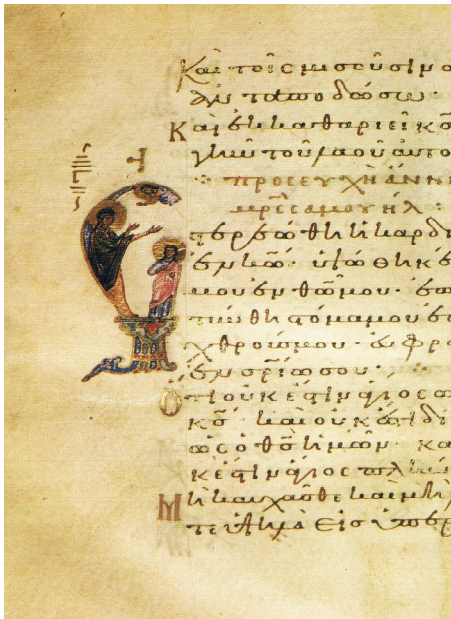 Καὶ τοῖς μισοῦσίν μ
ἀνταποδώσω·
Καὶ ἐκκαθαριεῖ κ̅ς̅
γῆν τοῦ λαοῦ αὐτο
προσευχὴ ἄννη
μ̅ρ̅ς̅ σαμουήλ·
Ἐϛερεώθη ἡ καρδί
ἐν κ̅ω̅· ὑψώθη κέ
μου ἐν θ̅ω̅ μου· ἐπ
τύνθη ϛόμα μου ἐπ
χθρούς μου· εὐφρ
ἐν σ̅ρ̅ίᾳ σου·
Ὅτι οὐκ ἔϛιν ἅγιος ὡ
κ̅ς̅· καὶ οὐκ ἔϛι δί
ὡς ὁ θ̅ς̅ ἡμῶν· κα
κ ἔϛιν ἅγιος πλὴν
Μὴ καυχᾶσθε καὶ μὴ λ
τε ὑψηλὰ εἰς ὑπερ